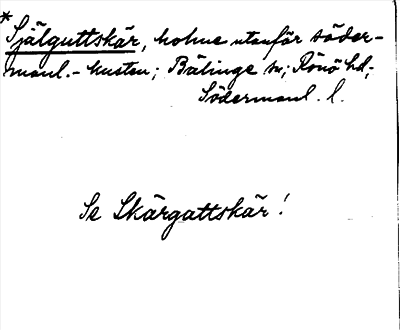 *Själguttskär, holme utanför söder-
manl.-kusten; Bälinge sn; Rönö hd;
Södermanl. l.
Se Skärgattskär!